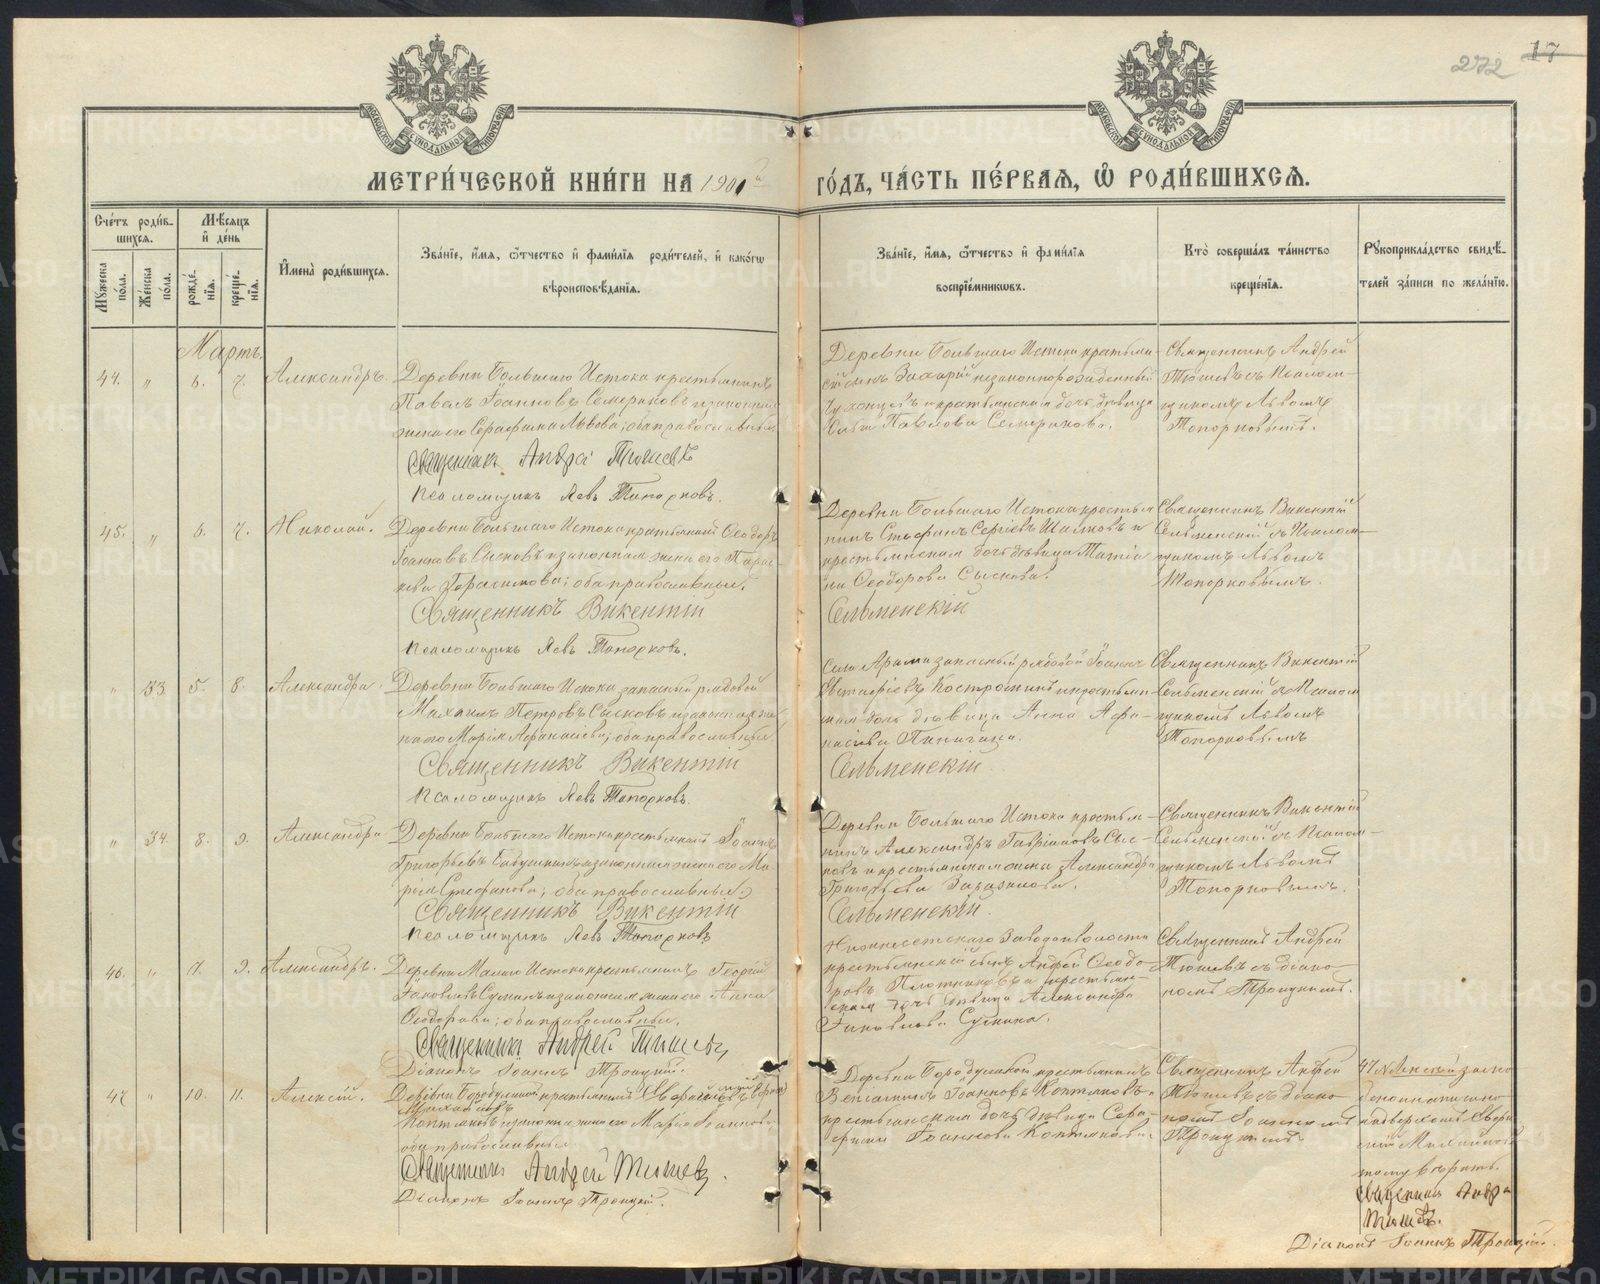 272 17
МОСКОВСКОЙ СѴНОДАЛЬНОЙ ТИПОГРАФІИ
МОСКОВСКОЙ СѴНОДАЛЬНОЙ ТИПОГРАФІИ
МЕТРИ́ЧЕСКОЙ КНИ́ГИ НА 1901й ГО́ДЪ, ЧА́СТЬ ПЕ́РВАѦ, Ѡ҆ РОДИ́ВШИХСѦ.
Сче́тъ роди́в-
шихсѧ.
Мꙋжеска по́ла.
Же́нска по́ла.
Мѣ́сѧцъ
и҆ де́нь
рожде́нїѧ.
креще́нїѧ.
И҆мена̀ роди́вшихсѧ.
Зва́нїе, и҆́мѧ, ѻ҆́тчество и҆ фами́лїѧ роди́телей, и҆ како́гѡ
вѣроисповѣ́данїѧ.
Зва́нїе, и҆́мѧ, ѻ҆́тчество и҆ фами́лїѧ
воспрїе́мникѡвъ.
Кто̀ соверша́лъ та́инство
креще́нїѧ.
Рꙋкоприкла́дство свидѣ́-
телей за́писи по жела́нїю.
Мартъ.
44. " 6. 7. Александръ.
Деревни Большаго Истока крестьянинъ
Павелъ Іоанновъ Семериковъ и законная
жена его Серафима Львова; оба православные
Священникъ Андрей Тюшевъ
Псаломщикъ Левъ Топорковъ.
Деревни Большаго Истока крестьян-
скій сынъ Захарій незаконнорожденный
и крестьянская дочь девица
Павлова Семерикова.
Священникъ Андрей
Тюшевъ съ псалом-
щикомъ Львомъ
Топорковымъ.
45. " 6. 7. Николай.
Деревни Большаго Истока крестьянинъ Ѳеодоръ
Іоанновъ Сысковъ и законная жена его Парас-
кева Герасимова; оба православные.
Священникъ Викентій
Псаломщикъ Левъ Топорковъ.
Деревни Большаго Истока крестья-
нинъ Стефанъ Сергіевъ и
крестьянская дочь девица Татіа-
на Ѳеодорова Сыскова.
Сельменскій
Священникъ Викентій
Сельменскій съ псалом-
щикомъ Львомъ
Топорковымъ.
" 33. 5. 8. Александра.
Деревни Большаго Истока запасный рядовой
Михаилъ Петровъ Сысковъ и законная же-
на его Марія Афанасьева; оба православные
Священникъ Викентій
Псаломщикъ Левъ Топорковъ.
Села Арамиля запасный рядовой Іоаннъ
Евстафіевъ Костроминъ и крестьян-
ская дочь девица Анна Афа-
насіева
Сельменскій
Священникъ Викентій
Сельменскій съ псалом-
щикомъ Львомъ
Топорковымъ
" 34. 8. 9. Александра
Деревни Большаго Истока крестьянинъ Іоаннъ
Григорьевъ Бабушкинъ и законная жена его Ма-
рія Стефанова; оба православные
Священникъ Викентій
Псаломщикъ Левъ Топорковъ
Деревни Большаго Истока крестья-
нинъ Александръ Гавріиловъ Сыс-
ковъ и крестьянская Александра
Григорьева
Сельменскій.
Священникъ Викентій
Сельменскій съ псалом-
щикомъ Львомъ
Топорковымъ.
46. " 7. 9. Александръ.
Деревни Малаго Истока крестьянинъ Георгій
Іаковлевъ и законная жена его Анна
Ѳеодорова; оба православные.
Священникъ Андрей Тюшевъ
Діаконъ Іоаннъ Троицкій.
Нижнеисетскаго Завода волости
крестьянскій сынъ Андрей Ѳеодо-
ровъ Плотниковъ и крестьян-
ская дочь девица Александра
Іаковлева
Священникъ Андрей
Тюшевъ съ діако-
номъ Троицкимъ.
47. " 10. 11. Алексій.
Деревни Бородулиной крестьянинъ
Михайловъ
Коптяковъ и законная жена его Марія Іоаннова
оба православные
Священникъ Андрей Тюшевъ.
Діаконъ Іоаннъ Троицкій.
Деревни Бородулиной крестьянинъ
Веніаминъ Іоанновъ Коптяковъ и
крестьянская дочь девица Сера-
фима Іоаннова Коптякова.
Священникъ Андрей
Тюшевъ съ діако-
номъ Іоанномъ
Троицкимъ
тому верить.
Священникъ Андрей
Тюшевъ.
Діаконъ Іоаннъ Троицкій.
METRIKI.GASO-URAL.RU